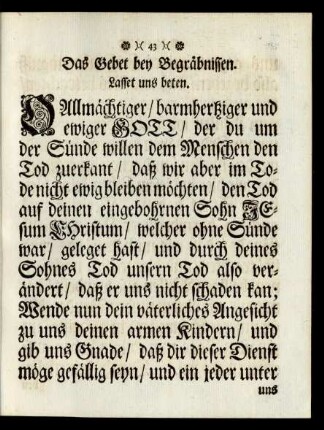 ❁ )( 43 )( ❁
Das Gebet bey Begräbnissen.
Lasset uns beten.
O Allmächtiger/ barmhertziger und
ewiger GOTT/ der du um
der Sünde willen dem Menschen den
Tod zuerkant/ daß wir aber im To-
de nicht ewig bleiben möchten/ den Tod
auf deinen eingebohrnen Sohn JE-
sum CHristum/ welcher ohne Sünde
war/ geleget hast/ und durch deines
Sohnes Tod unsern Tod also ver-
ändert/ daß er uns nicht schaden kan;
Wende nun dein väterliches Angesicht
zu uns deinen armen Kindern/ und
gib uns Gnade/ daß dir dieser Dienst
möge gefällig seyn/ und ein jeder unter
uns